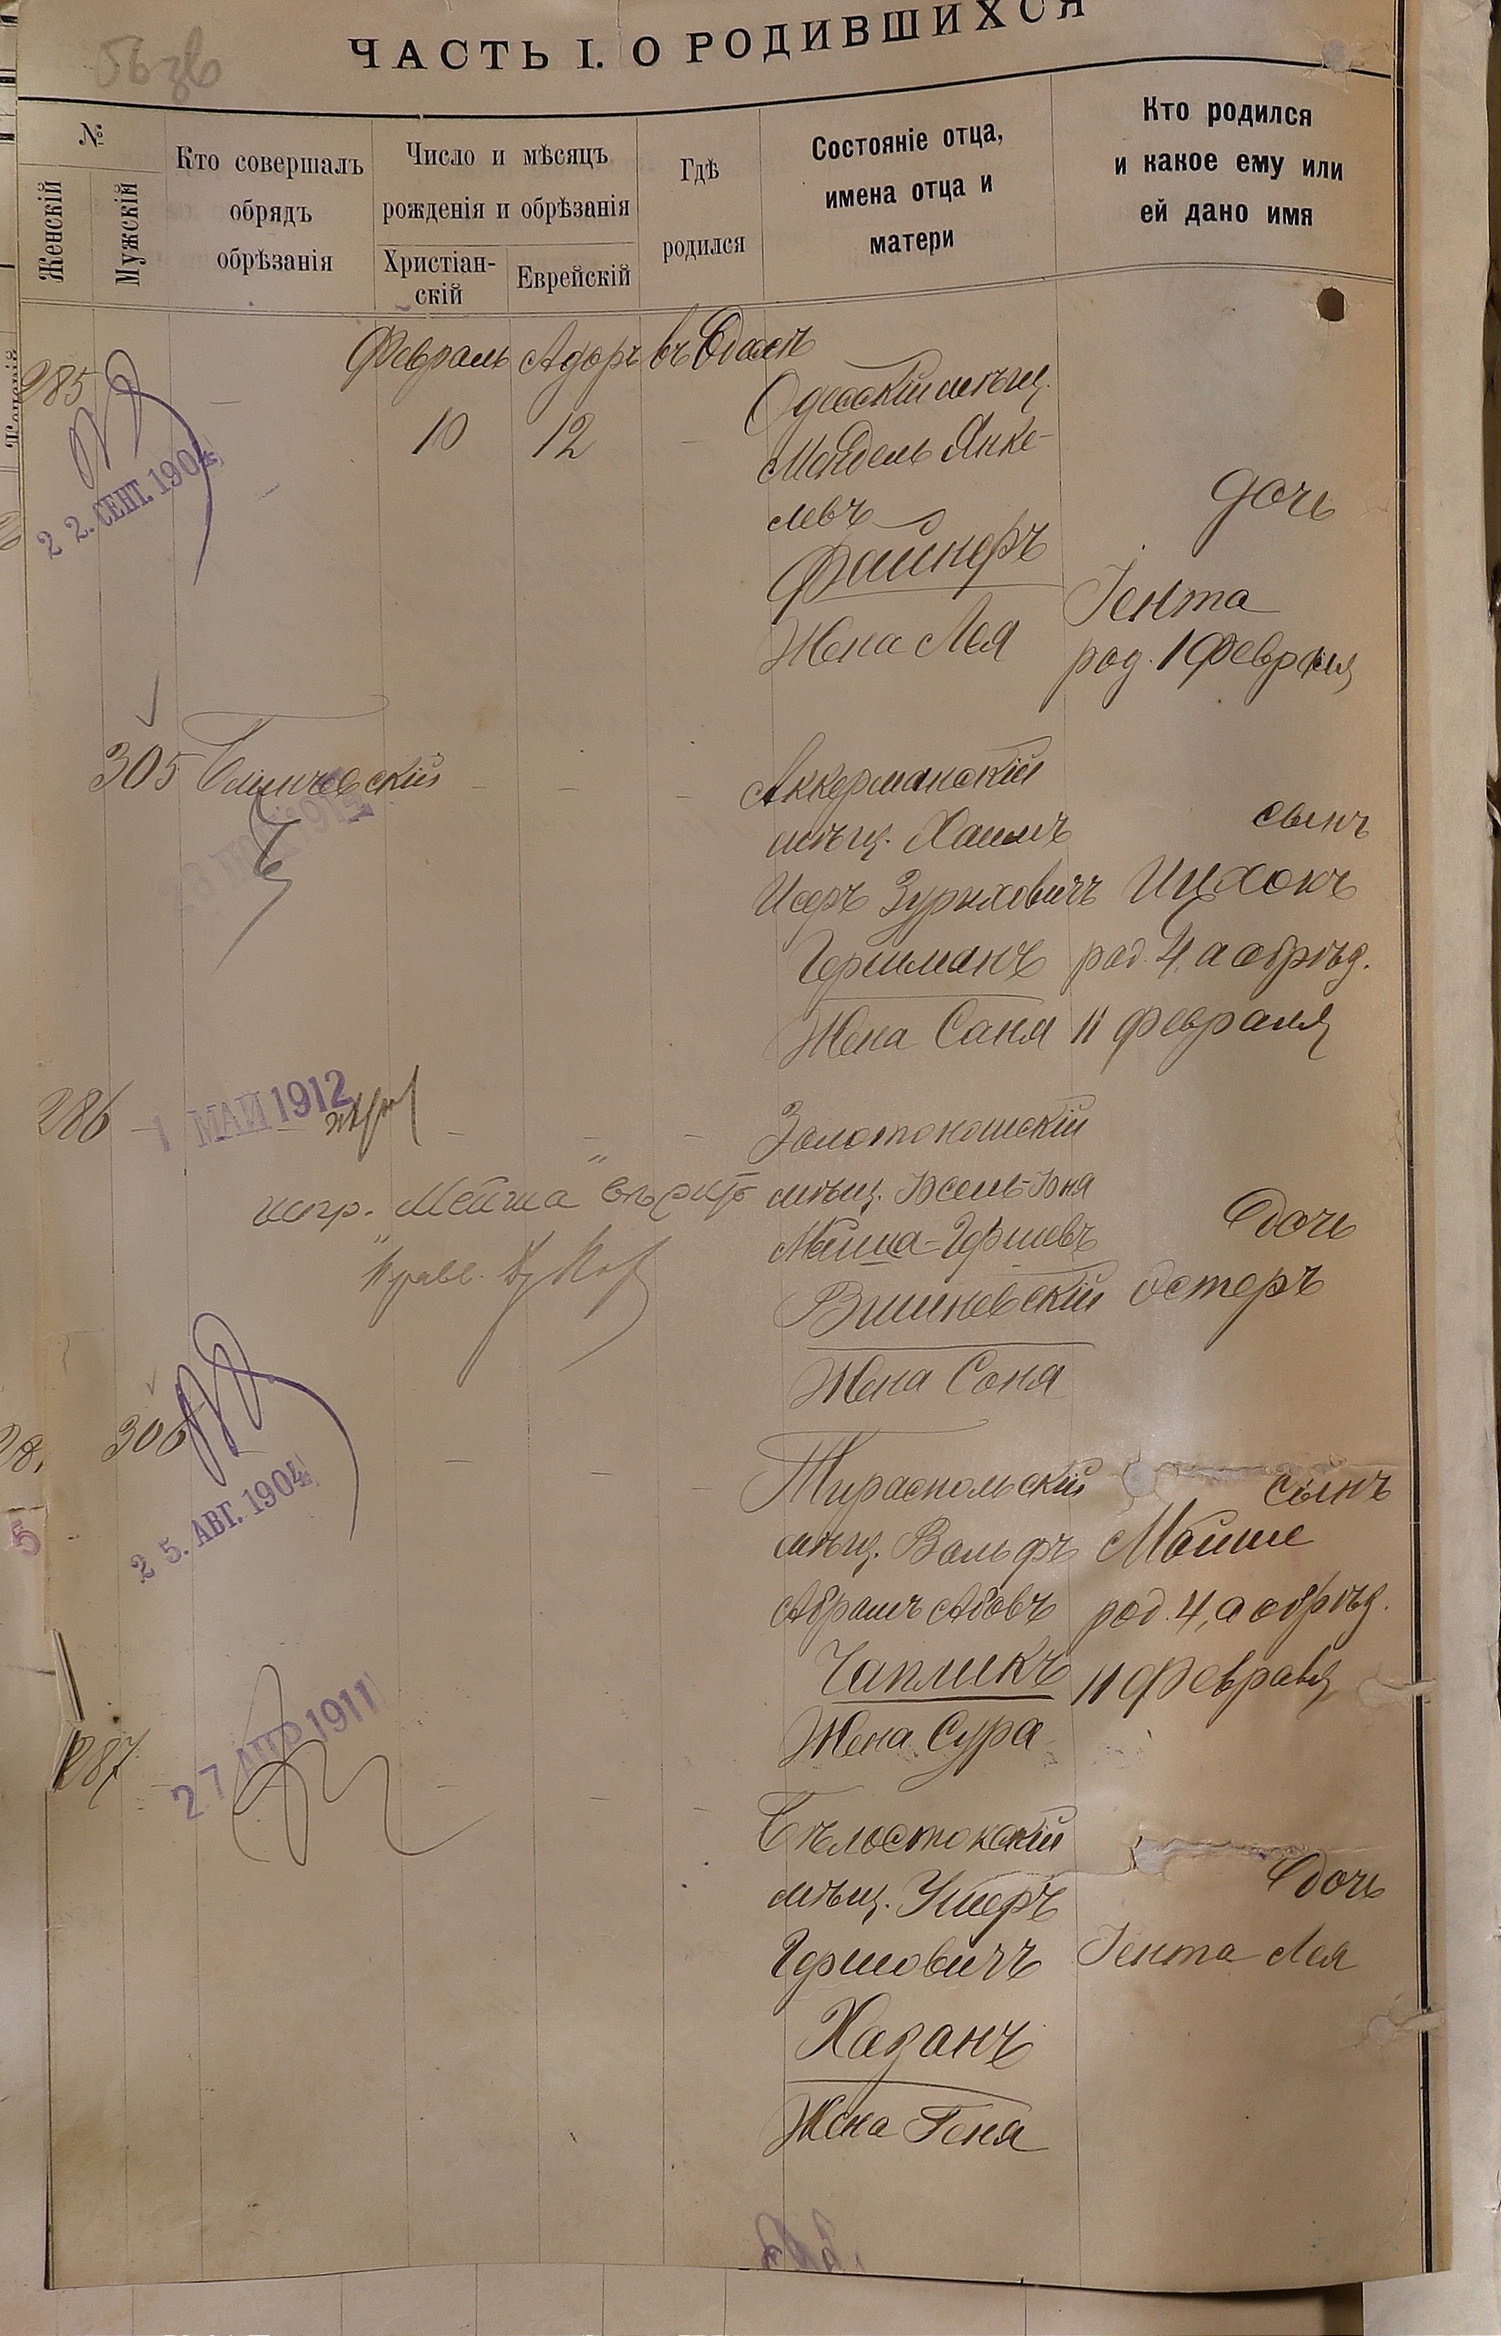 ЧАСТЬ I. О РОДИВШИХСЯ
№
Женскій
Мужскій
Кто совершалъ
обрядъ
обрѣзанія
Число и мѣсяцъ
рожденія и обрѣзанія
Христіан-
скій
Еврейскій
Гдѣ
родился
Состояніе отца,
имена отца и
матери
Кто родился
и какое ему или
ей дано имя
Февраль Адоръ въ Одессѣ
285
22. СЕНТ. 1904
10 12
Одесскій мѣщ.
Мендель Янке-
левъ
Файнеръ
Жена Лея
дочь
Іента
род. 1 Февраля
305
Аккерманскій
мѣщ. Хаимъ
Исеръ Зурыховичъ
Гершманъ
Жена Саня
сынъ
Ицхокъ
род. 4, а обрѣз.
11 февраля
286
1 МАЙ 1912
испр. "Мейша" вѣрить
Золотоношскій
мѣщ. Іосель-Іона
Мейша-Гершевъ
Вишневскій
Жена Соня
дочь
Эстеръ
306
25. АВГ. 1904
Тираспольскій
мѣщ. Вольфъ
Абрамъ Абовъ
Чапликъ
Жена Сура
сынъ
Мойше
род. 4, а обрѣз.
11 Февраля
287
27 АПР 1911
Бѣлостокскій
мѣщ. Ушеръ
Гершовичъ
Хазанъ
Жена Геня
дочь
Іента Лея